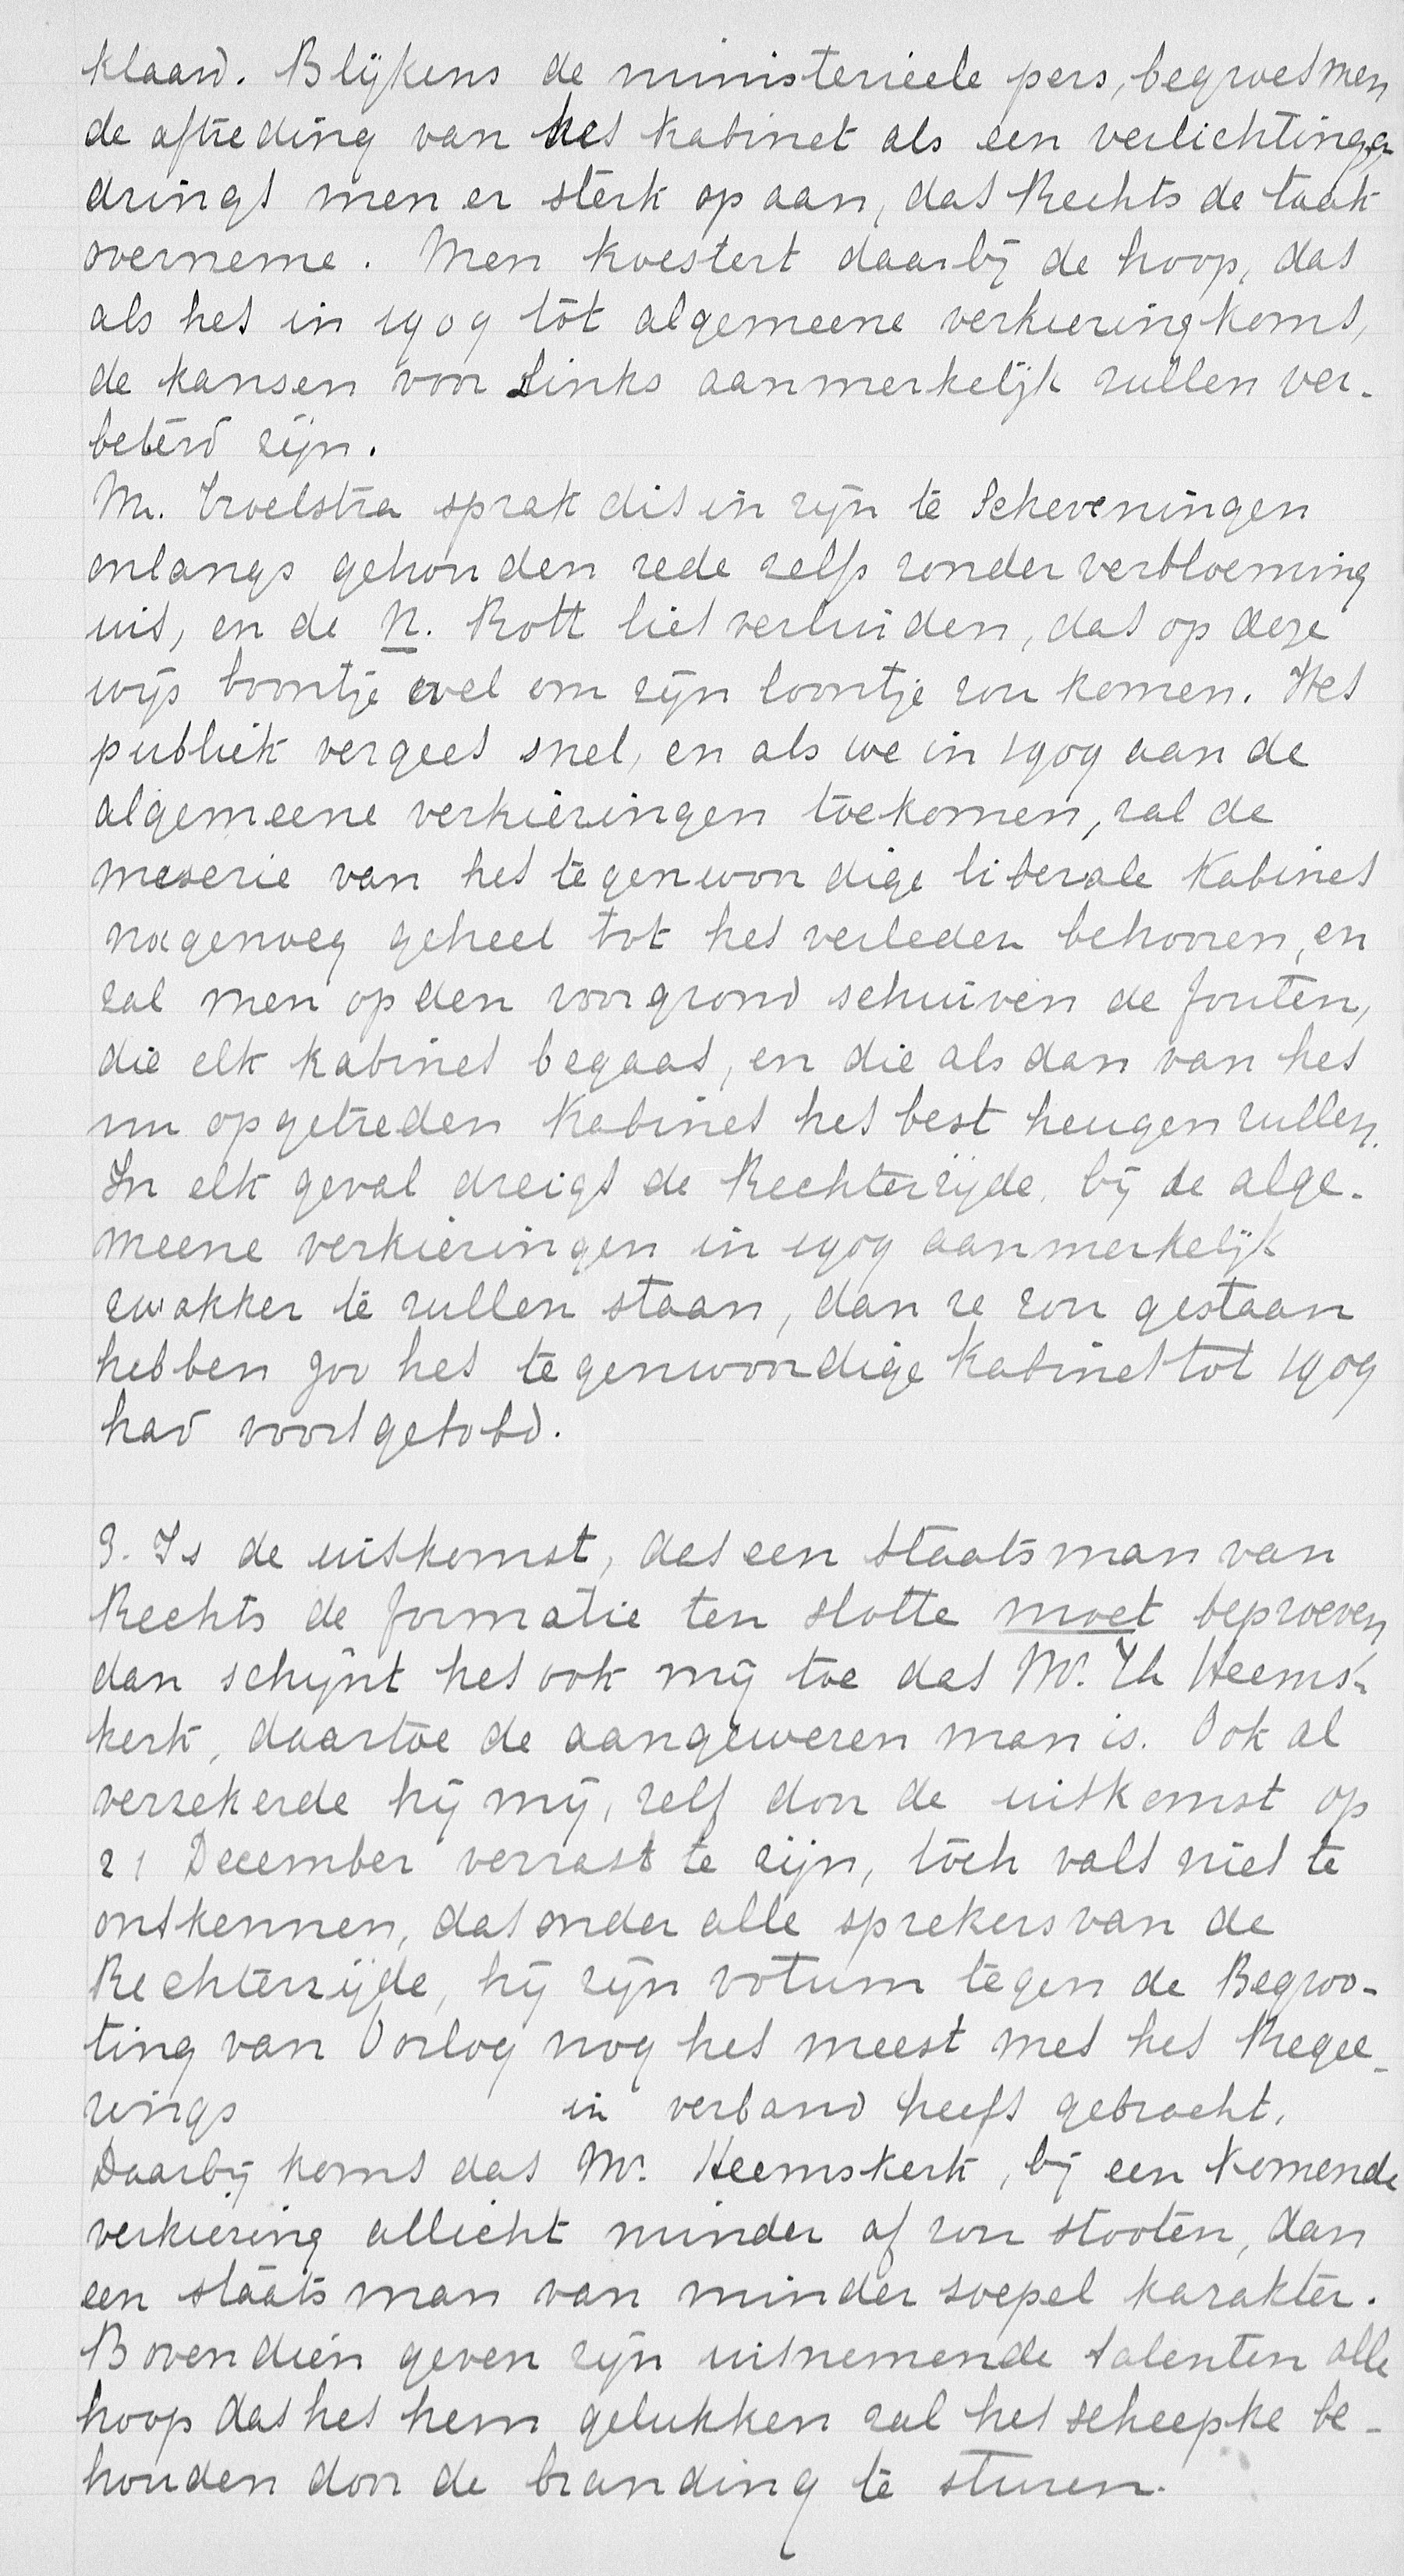 klaard. Blijkens de ministerieele pers, begroet men
de aftreding van het Kabinet als een verlichting en
dringt men er sterk op aan, dat Rechts de taak
overneme. Men koestert daarbij de hoop, dat
als het in 1909 tot algemeene verkiezing komt,
de kansen voor Links aanmerkelijk zullen ver-
beterd zijn.
Mr. Troelstra sprak dit in zijn te Scheveningen
onlangs gehouden rede zelfs zonder verbloeming
uit, en de N. Rott liet verluiden, dat op deze
wijs boontje wel om zijn loontje zou komen. Het
publiek vergeet snel, en als we in 1909 aan de
algemeene verkiezingen toekomen, zal de
meserie van het tegenwoordige liberale Kabinet
nagenoeg geheel tot het verleden behooren, en
zal men op den voorgrond schuiven de fouten,
die elk Kabinet begaat, en die als dan van het
nu opgetreden Kabinet het best heugen zullen.
In elk geval dreigt de Rechterzijde, bij de alge-
meene verkiezingen in 1909 aanmerkelijk
zwakker te zullen staan, dan ze zou gestaan
hebben zoo het tegenwoordige Kabinet tot 1909
had voortgetobd.
3. Is de uitkomst, dat een Staatsman van
Rechts de formatie ten slotte moet beproeven,
dan schijnt het ook mij toe dat Mr. Th Heems-
kerk, daartoe de aangewezen man is. Ook al
verzekerde hij mij, zelf door de uitkomst op
21 December verrast te zijn, toch valt niet te
ontkennen, dat onder alle sprekers van de
Rechterzijde, hij zijn votum tegen de Begroo-
ting van Oorlog nog het meest met het Regee-
rings in verband heeft gebracht.
Daarbij komt dat Mr. Heemskerk, bij een komende
verkiezing allicht minder af zou stooten, dan
een staatsman van minder soepel karakter.
Bovendien geven zijn uitnemende talenten alle
hoop dat het hem gelukken zal het scheepke be-
houden door de branding te sturen.